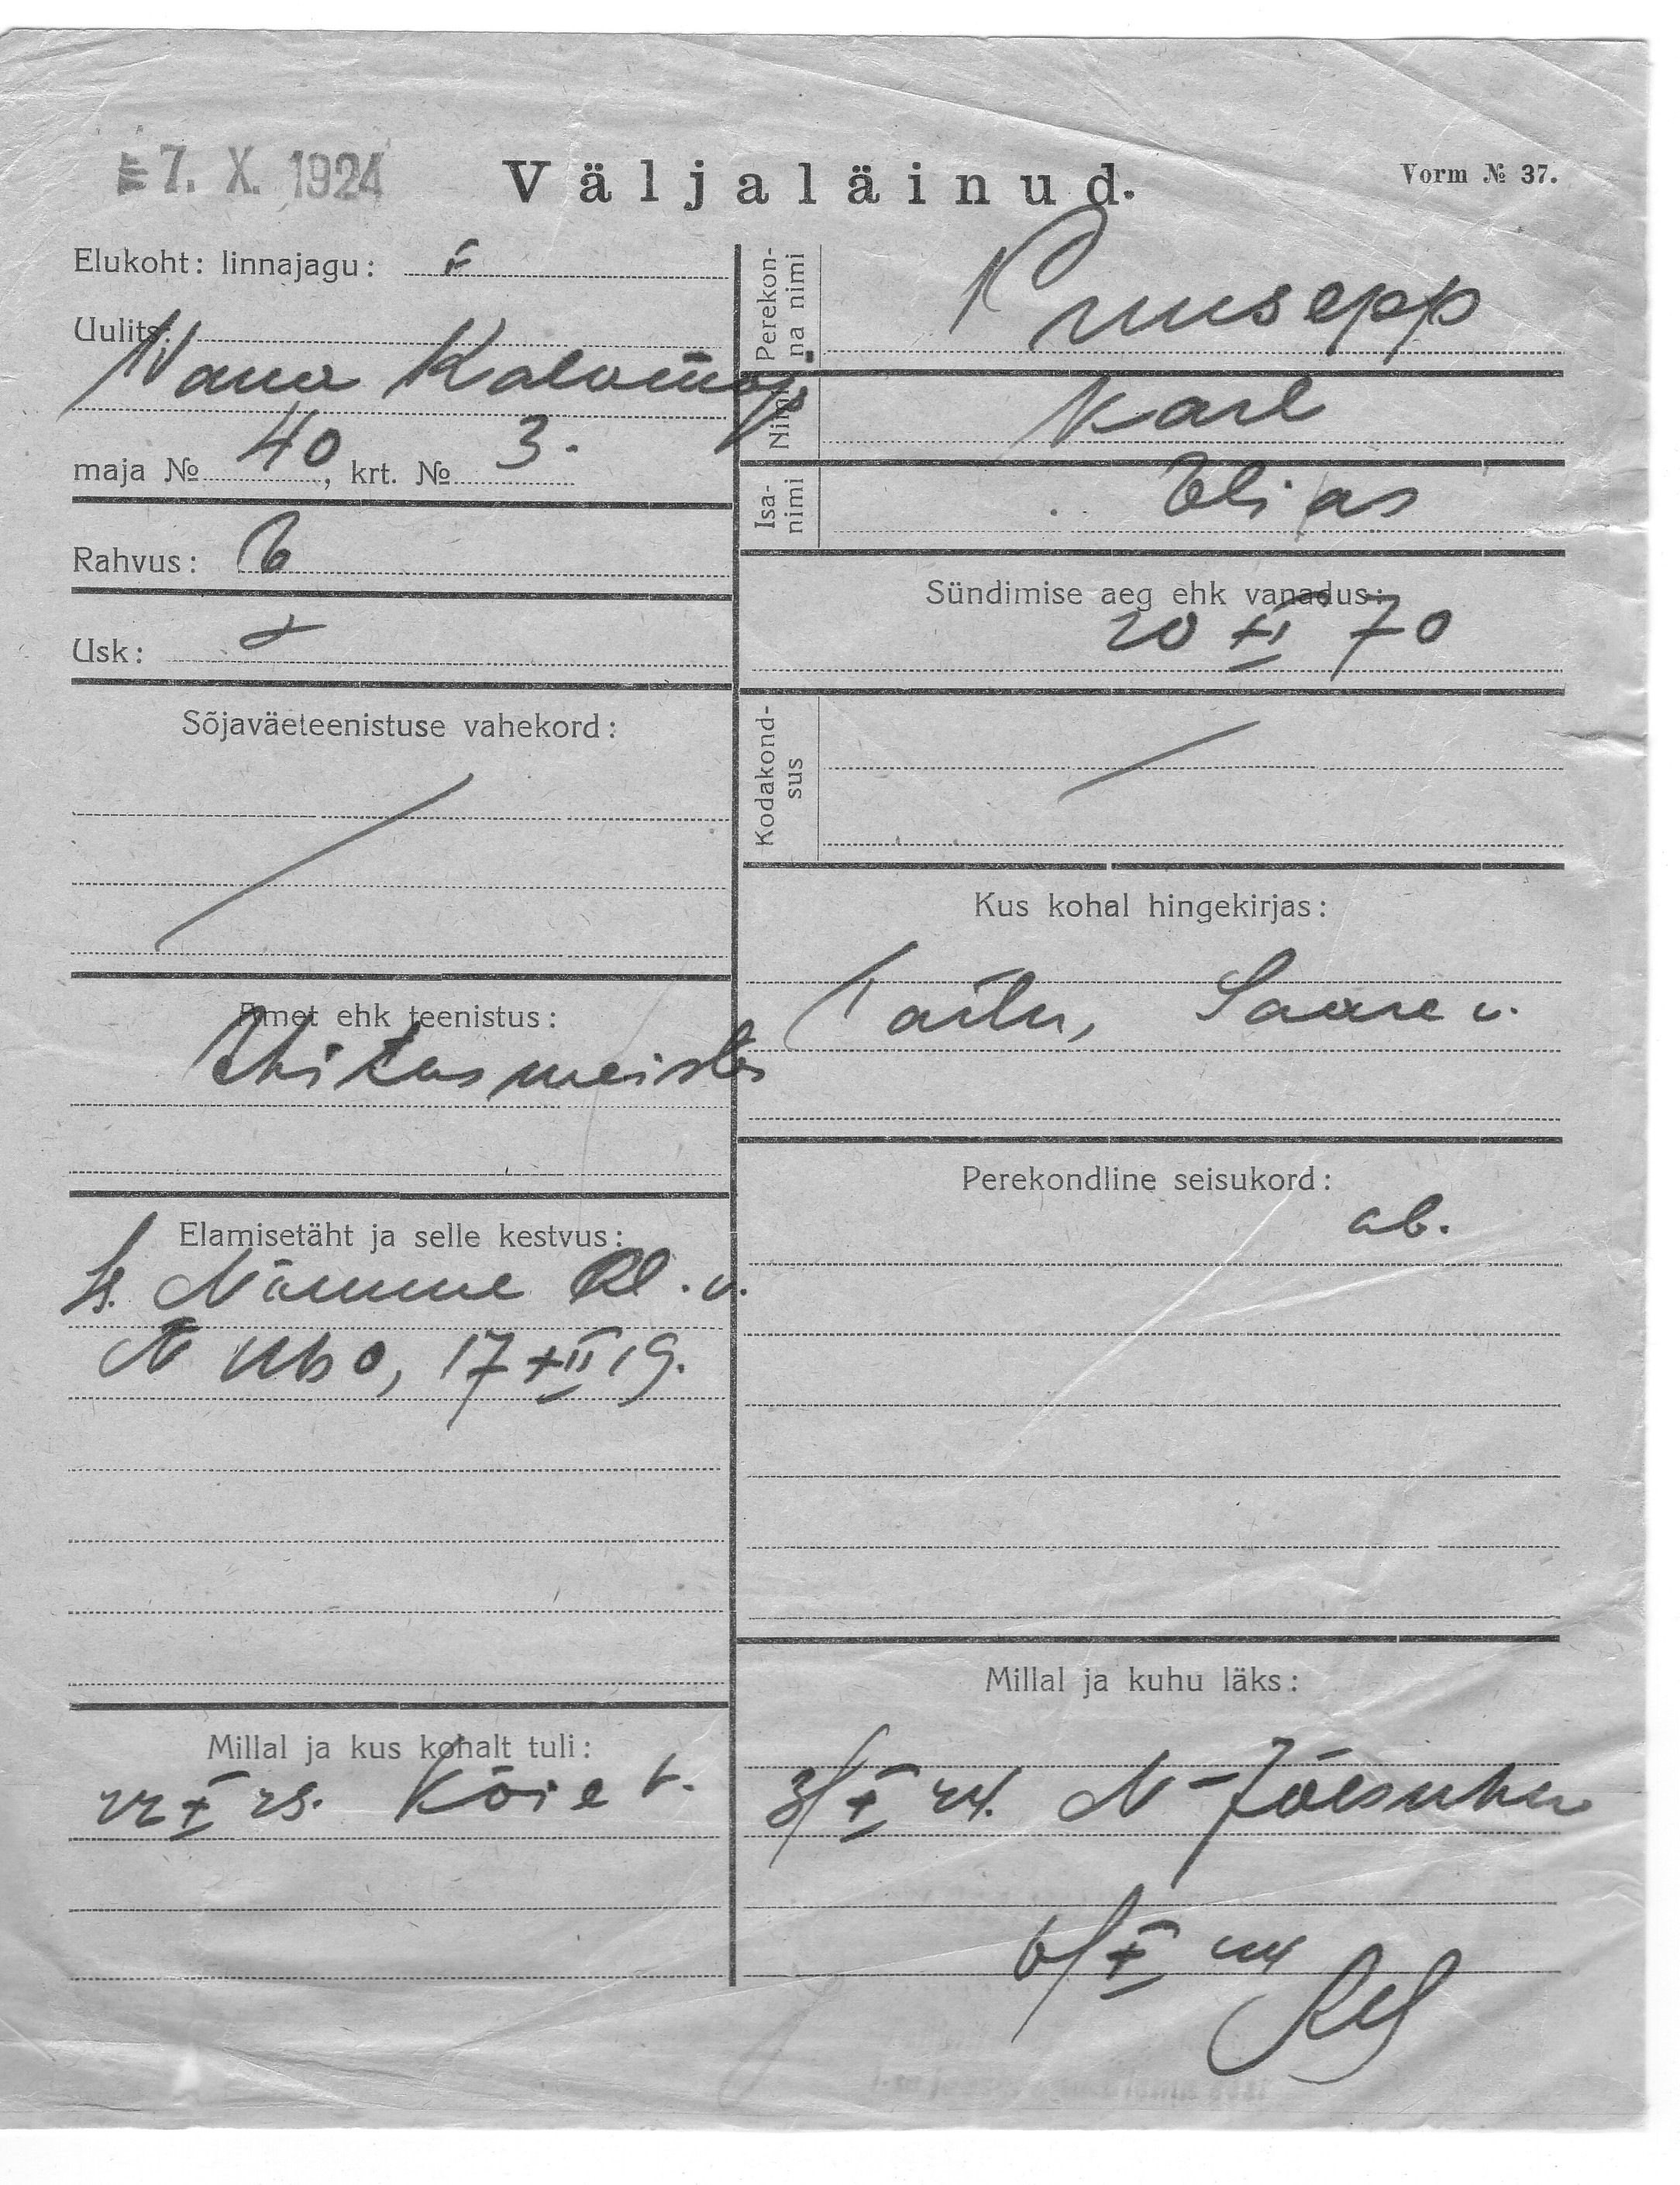 7. X. 1924
Väljaläinud.
Vorm № 37.
Elukoht: linnajagu: I
Uulits:
Wana Kalamaja
maja № 40, krt. № 3.
Rahvus: E
Usk:
Sõjaväeteenistuse vahekord:
Amet ehk teenistus:
Ehitusmeister
Elamisetäht ja selle kestvus:
Is. Nõmme al. v.
N 1160, 17 XII 19.
Millal ja kus kohalt tuli:
22 X 23. Kõie t.
Perekon-
na nimi
Kruusepp
Nimi
Karl
Isa-
nimi
Elias
Sündimise aeg ehk vanadus:
20 XI 70
Kodakond-
sus
Kus kohal hingekirjas:
Tartu, Saare v.
Perekondline seisukord:
ab.
Millal ja kuhu läks:
3/X 24. N-Jõesuhu
6/X 24